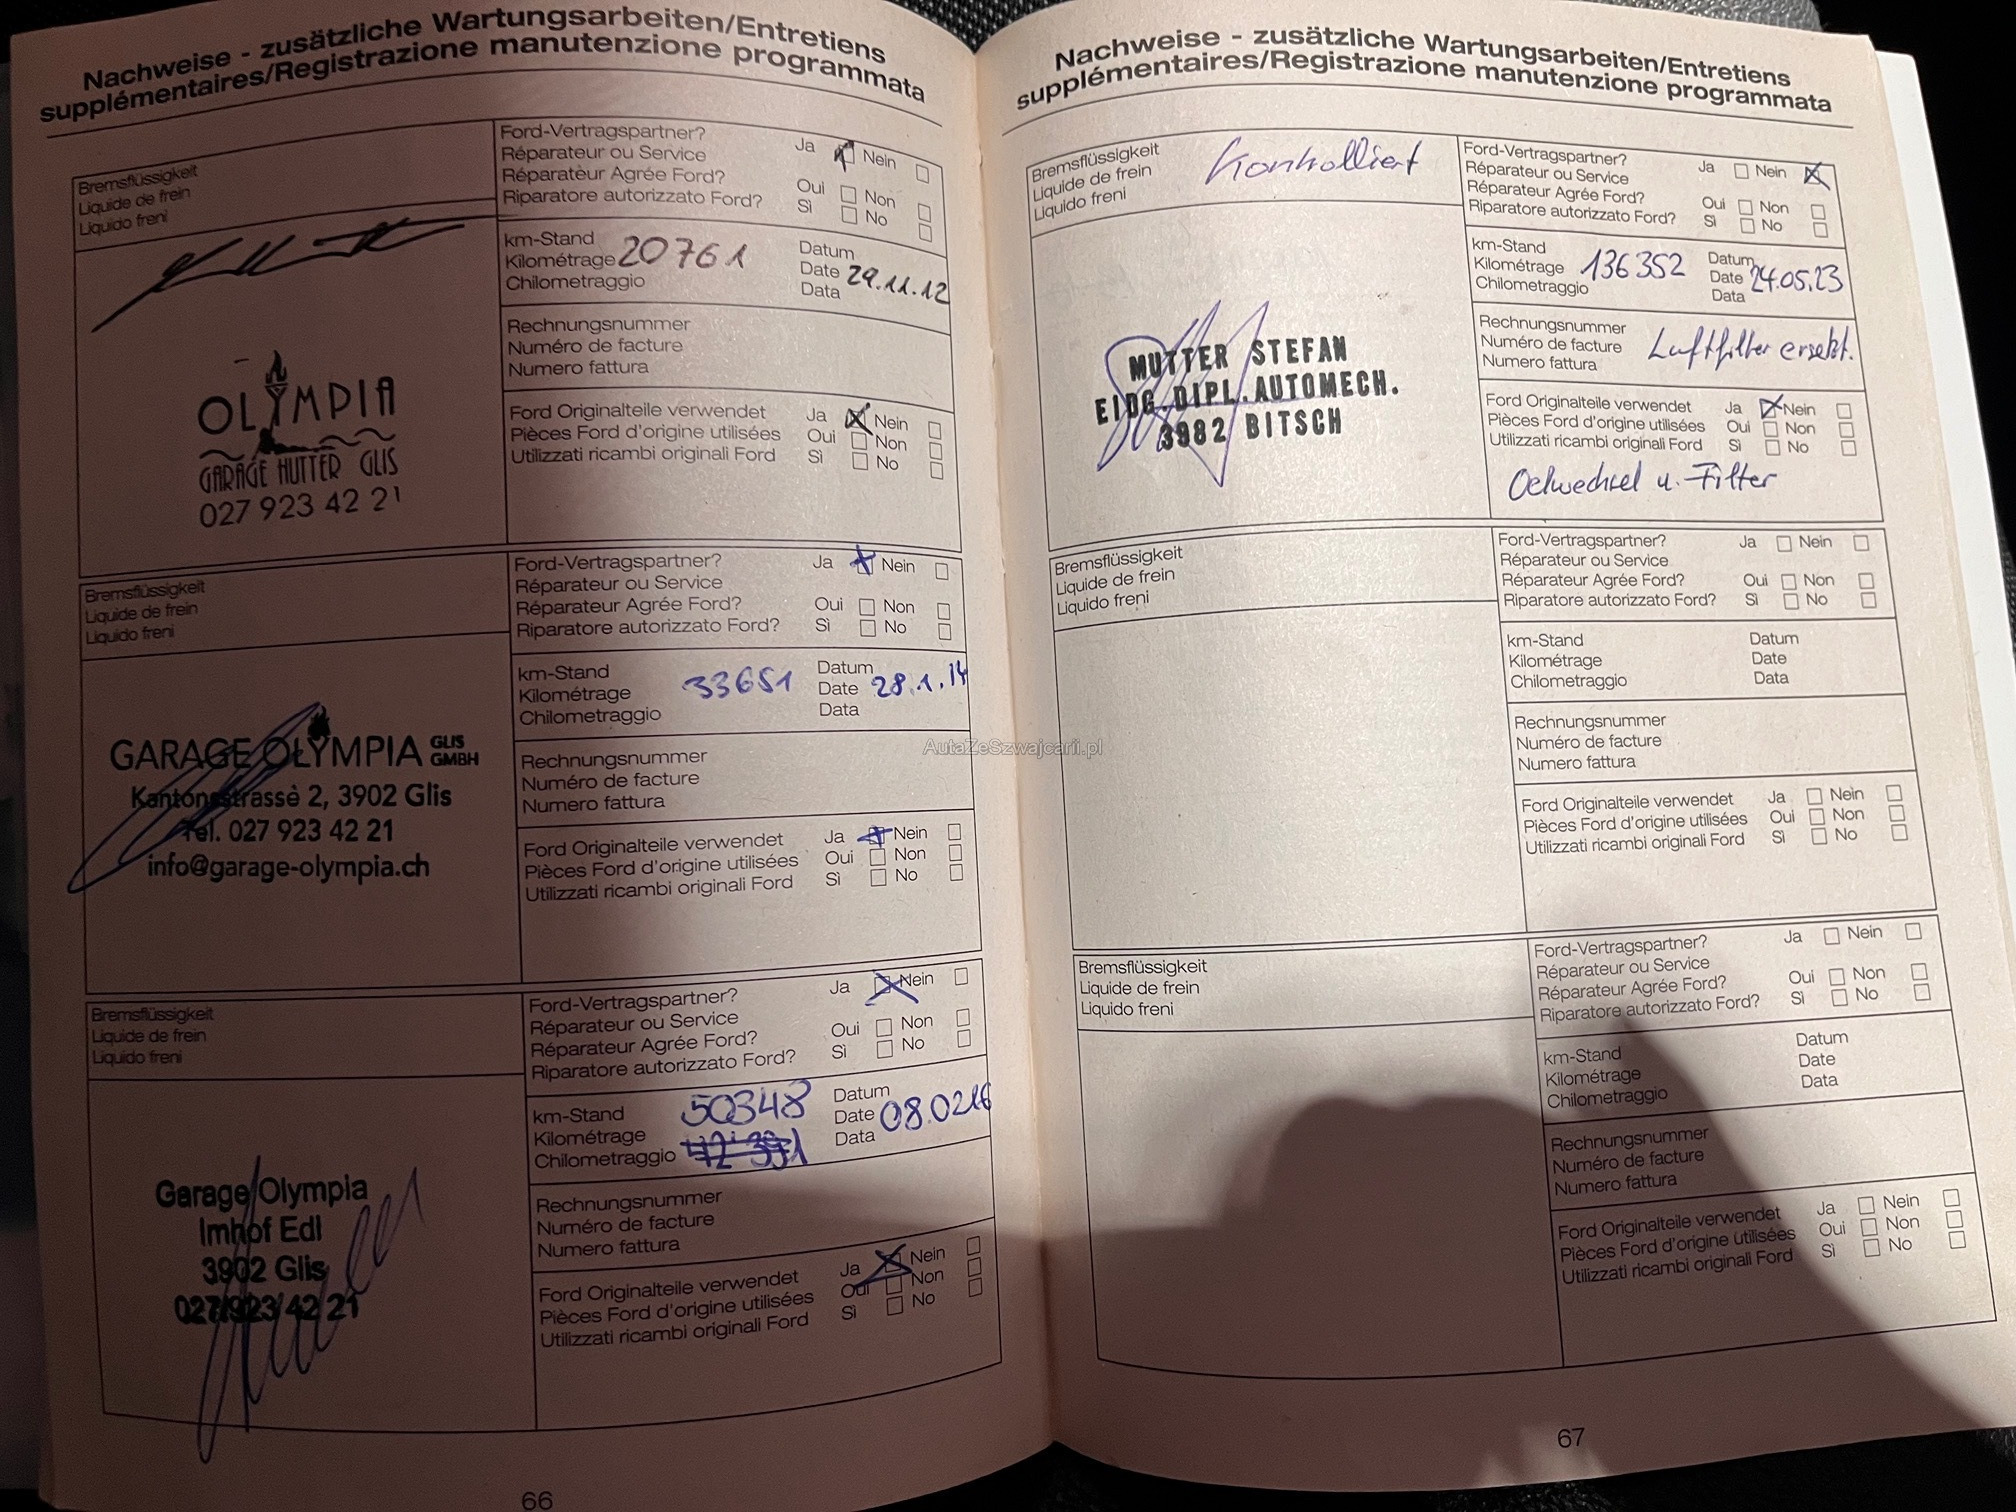 Nachweise - zusätzliche Wartungsarbeiten/Entretiens
supplémentaires/Registrazione manutenzione programmata
Bremsflüssigkeit
Liquide de frein
Liquido freni
Ford-Vertragspartner? Ja Nein
Réparateur ou Service
Réparateur Agréé Ford? Oui Non
Riparatore autorizzato Ford? Sì No
km-Stand
Kilométrage 20761
Chilometraggio
Datum
Date 29.11.12
Data
Rechnungsnummer
Numéro de facture
Numero fattura
Ford Originalteile verwendet Ja Nein
Pièces Ford d'origine utilisées Oui Non
Utilizzati ricambi originali Ford Sì No
OLYMPIA
GARAGE HUTTER GLIS
027 923 42 21
Bremsflüssigkeit
Liquide de frein
Liquido freni
Ford-Vertragspartner? Ja Nein
Réparateur ou Service
Réparateur Agrée Ford? Oui Non
Riparatore autorizzato Ford? Sì No
km-Stand
Kilométrage 33651
Chilometraggio
Datum
Date 28.1.14
Data
Rechnungsnummer
Numéro de facture
Numero fattura
Ford Originalteile verwendet Ja Nein
Pièces Ford d'origine utilisées Oui Non
Utilizzati ricambi originali Ford Sì No
GARAGE OLYMPIA GLIS GMBH
Kantonsstrasse 2, 3902 Glis
Tel. 027 923 42 21
info@garage-olympia.ch
Bremsflüssigkeit
Liquide de frein
Liquido freni
Ford-Vertragspartner? Ja Nein
Réparateur ou Service
Réparateur Agrée Ford? Oui Non
Riparatore autorizzato Ford? Sì No
km-Stand 50348
Kilométrage
Chilometraggio 42'391
Datum
Date 08.02.16
Data
Rechnungsnummer
Numéro de facture
Numero fattura
Ford Originalteile verwendet Ja Nein
Pièces Ford d'origine utilisées Oui Non
Utilizzati ricambi originali Ford Sì No
Garage Olympia
Imhof Edl
3902 Glis
027/923/42 21
66
Nachweise - zusätzliche Wartungsarbeiten/Entretiens
supplémentaires/Registrazione manutenzione programmata
Bremsflüssigkeit
Liquide de frein
Liquido freni
Kontrolliert
Ford-Vertragspartner? Ja Nein
Réparateur ou Service
Réparateur Agrée Ford? Oui Non
Riparatore autorizzato Ford? Sì No
km-Stand
Kilométrage 136352
Chilometraggio
Datum
Date 24.05.23
Data
Rechnungsnummer
Numéro de facture Luftfilter ersetzt.
Numero fattura
Ford Originalteile verwendet Ja Nein
Pièces Ford d'origine utilisées Oui Non
Utilizzati ricambi originali Ford Sì No
Oelwechsel u. Filter
MUTTER STEFAN
EIDG. DIPL. AUTOMECH.
3982 BITSCH
Bremsflüssigkeit
Liquide de frein
Liquido freni
Ford-Vertragspartner? Ja Nein
Réparateur ou Service
Réparateur Agrée Ford? Oui Non
Riparatore autorizzato Ford? Sì No
km-Stand
Kilométrage
Chilometraggio
Datum
Date
Data
Rechnungsnummer
Numéro de facture
Numero fattura
Ford Originalteile verwendet Ja Nein
Pièces Ford d'origine utilisées Oui Non
Utilizzati ricambi originali Ford Sì No
Bremsflüssigkeit
Liquide de frein
Liquido freni
Ford-Vertragspartner? Ja Nein
Réparateur ou Service
Réparateur Agrée Ford? Oui Non
Riparatore autorizzato Ford? Sì No
km-Stand
Kilométrage
Chilometraggio
Datum
Date
Data
Rechnungsnummer
Numéro de facture
Numero fattura
Ford Originalteile verwendet Ja Nein
Pièces Ford d'origine utilisées Oui Non
Utilizzati ricambi originali Ford Sì No
67
AutaZeSzwajcarii.pl